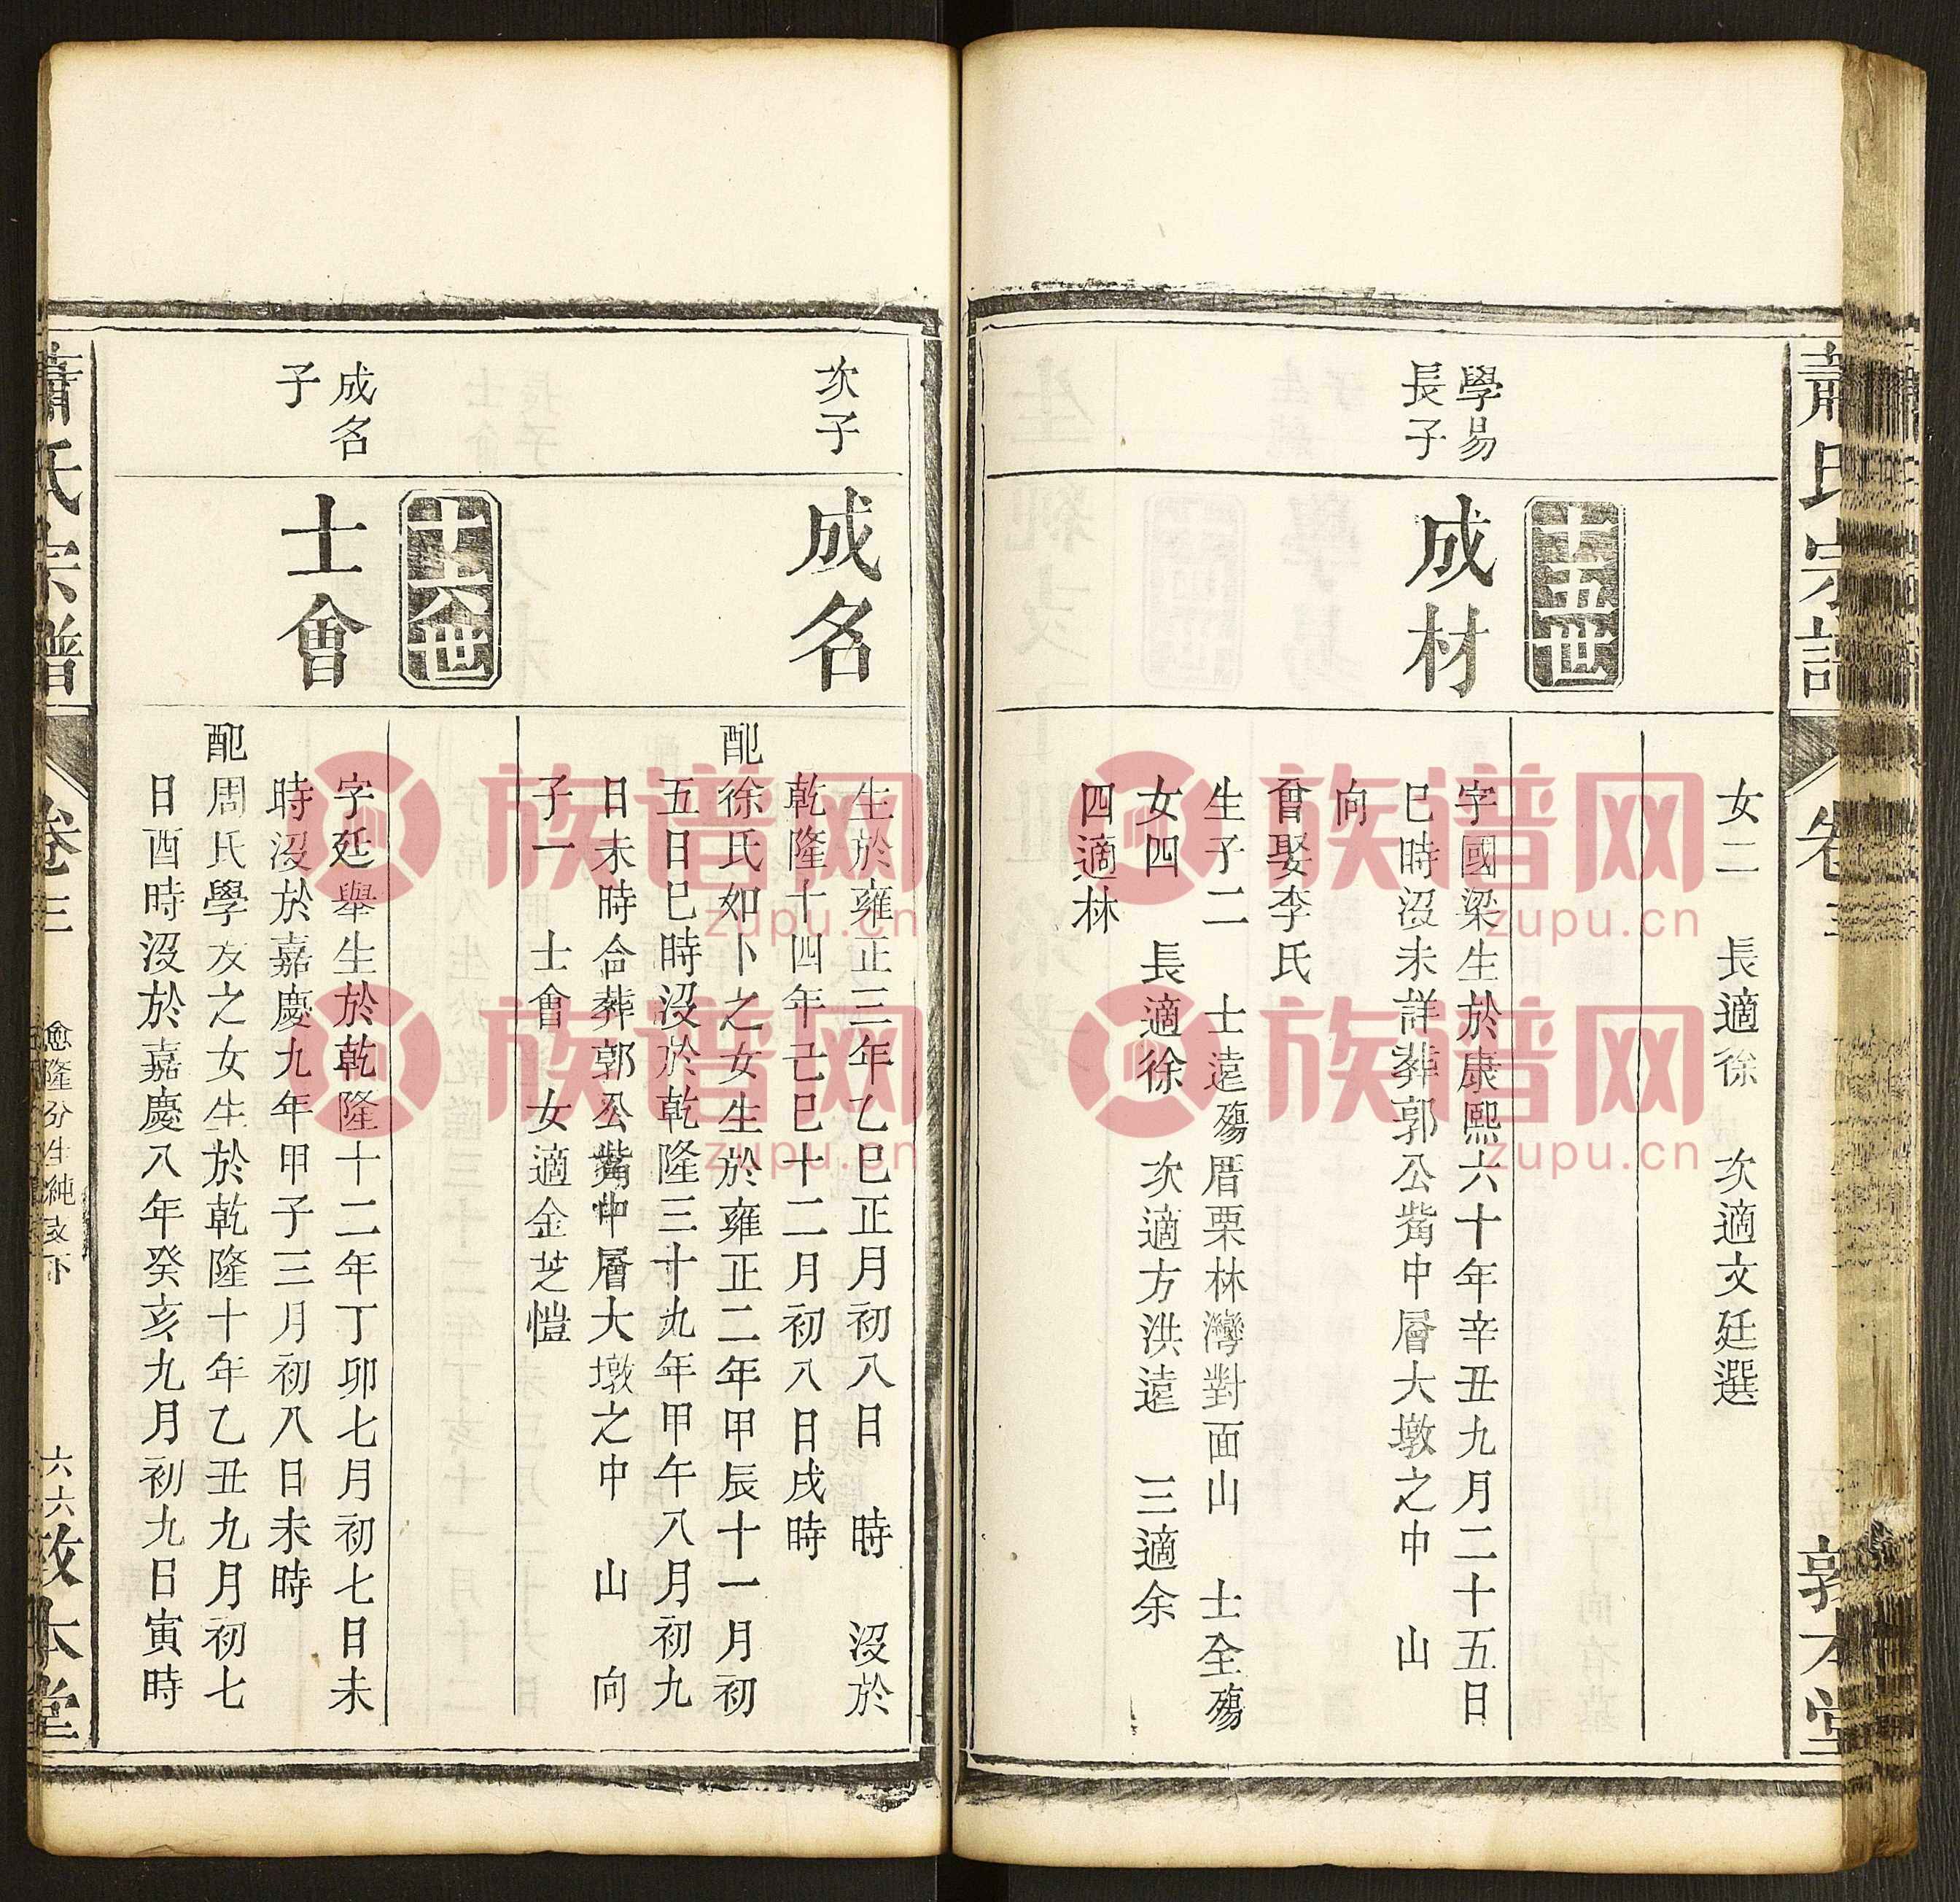 蕭氏宗譜
卷三
敦本堂
女二　長適徐　次適文廷選
十五世
學易
長子
成材
字國梁生於康熙六十年辛丑九月二十五日
巳時沒未詳葬郭公觜中層大墩之中　山
向
會娶李氏
生子二　士遠殤厝栗林灣對面山　士全殤
女四　長適徐　次適方洪遠　三適余
四適林
次子
成名
生於雍正三年乙巳正月初八日　時　沒於
乾隆十四年己巳十二月初八日戌時
配徐氏如卜之女生於雍正二年甲辰十一月初
五日巳時沒於乾隆三十九年甲午八月初九
日未時合葬郭公觜中層大墩之中　山　向
子一　士會　女適金芝愷
十六世
成名
子
士會
字廷舉生於乾隆十二年丁卯七月初七日未
時沒於嘉慶九年甲子三月初八日未時
配周氏學友之女生於乾隆十年乙丑九月初七
日酉時沒於嘉慶八年癸亥九月初九日寅時
蕭氏宗譜
卷三
愈隆分生純支下
六六
敦本堂
族谱网
zupu.cn
族谱网
zupu.cn
族谱网
zupu.cn
族谱网
zupu.cn